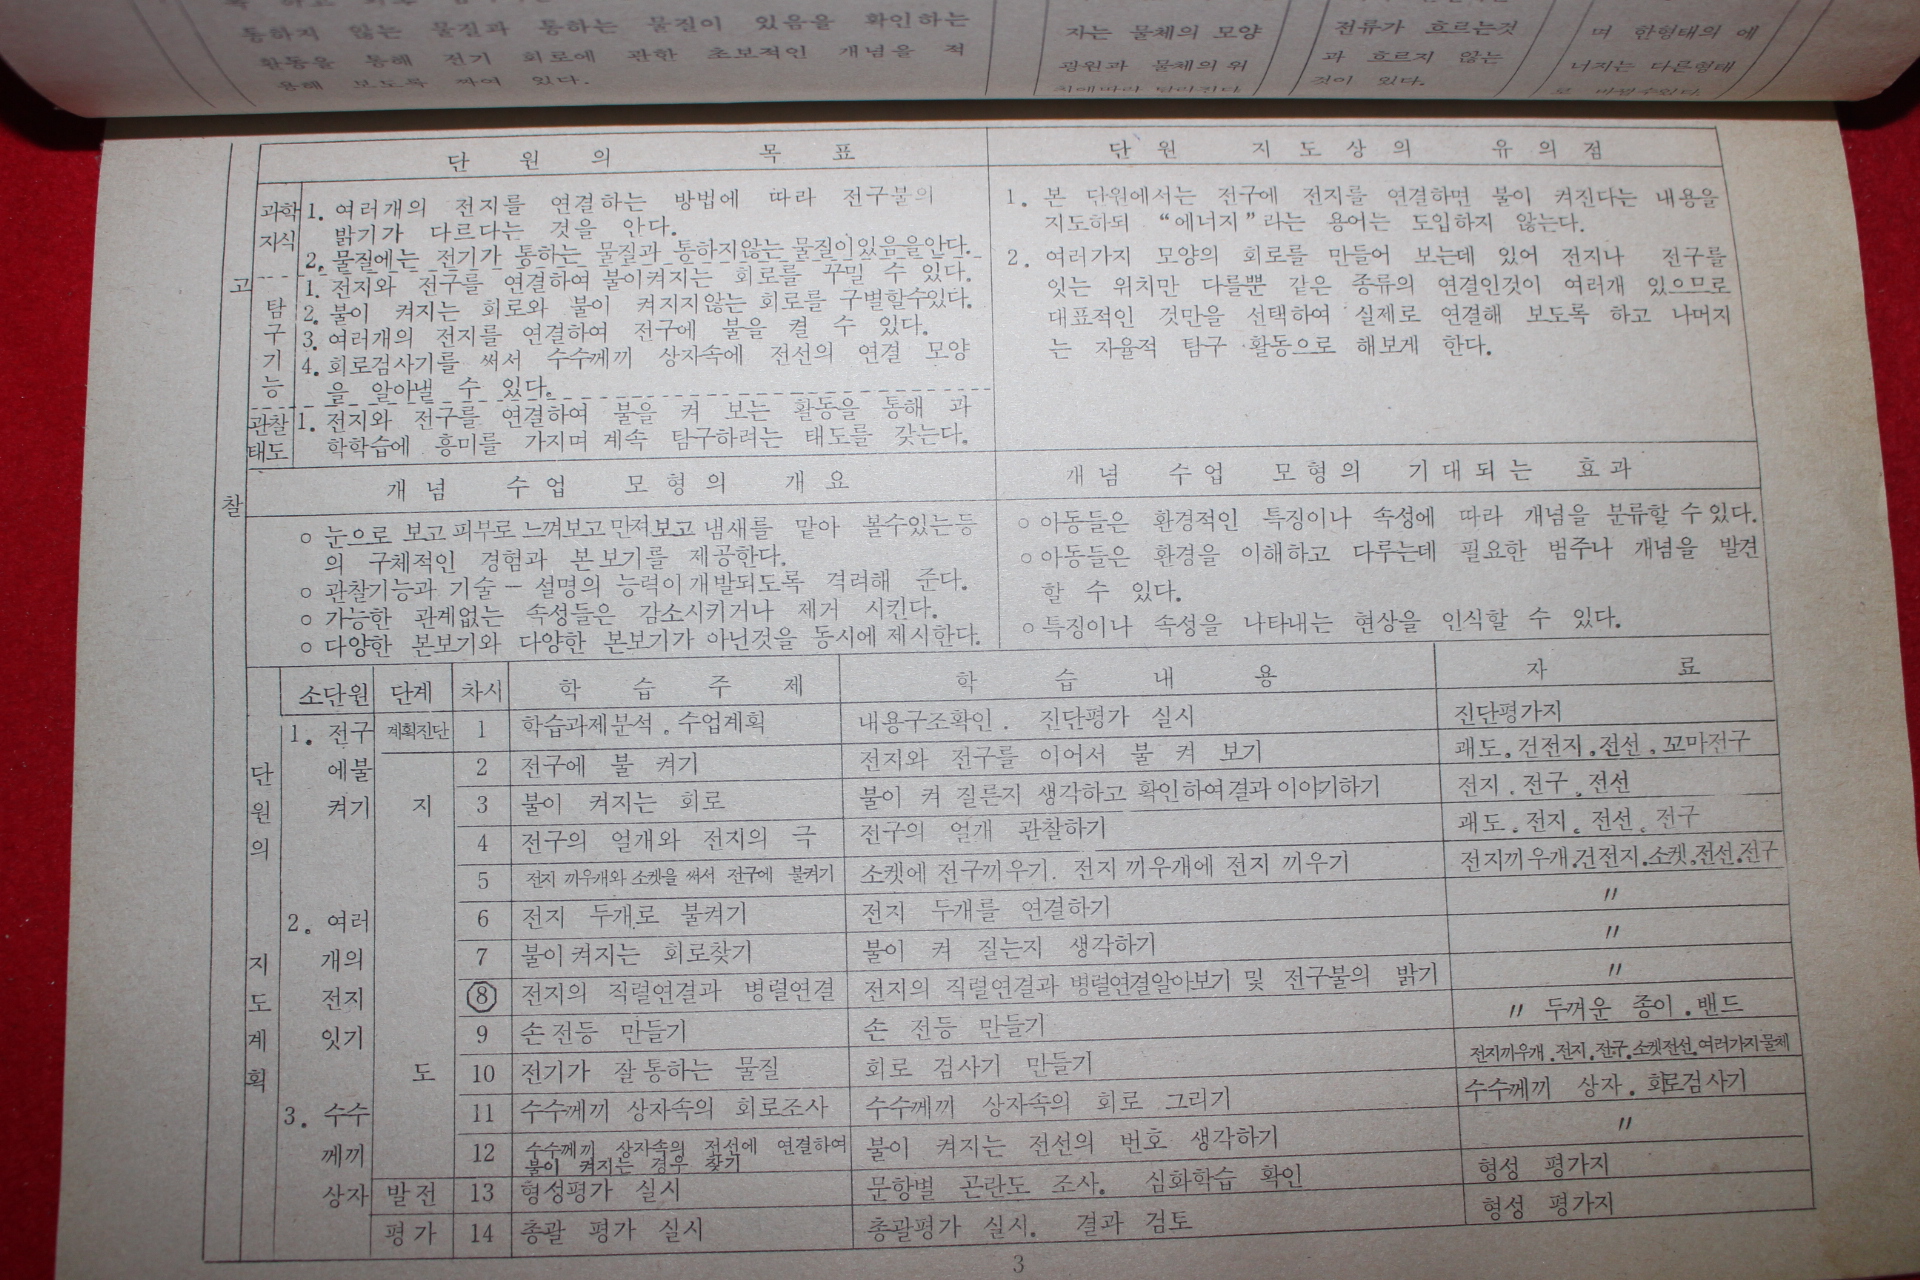 통하지 않는 물질과 통하는 물질이 있음을 확인하는
활동을 통해 전기 회로에 관한 초보적인 개념을 적
용해 보도록 짜여 있다.
자는 물체의 모양
광원과 물체의 위
전류가 흐르는것
과 흐르지 않는
것이 있다.
며 한형태의 에
너지는 다른형태
단 원 의 목 표
단 원 지 도 상 의 유 의 점
고 찰
과학 지식
1. 여러개의 전지를 연결하는 방법에 따라 전구불의
밝기가 다르다는 것을 안다.
2. 물질에는 전기가 통하는 물질과 통하지않는 물질이있음을안다.
탐 구 기 능
1. 전지와 전구를 연결하여 불이켜지는 회로를 꾸밀 수 있다.
2. 불이 켜지는 회로와 불이 켜지지않는 회로를 구별할수있다.
3. 여러개의 전지를 연결하여 전구에 불을 켤 수 있다.
4. 회로검사기를 써서 수수께끼 상자속에 전선의 연결 모양
을 알아낼 수 있다.
관찰 태도
1. 전지와 전구를 연결하여 불을 켜 보는 활동을 통해 과
학학습에 흥미를 가지며 계속 탐구하려는 태도를 갖는다.
1. 본 단원에서는 전구에 전지를 연결하면 불이 켜진다는 내용을
지도하되 “에너지”라는 용어는 도입하지 않는다.
2. 여러가지 모양의 회로를 만들어 보는데 있어 전지나 전구를
잇는 위치만 다를뿐 같은 종류의 연결인것이 여러개 있으므로
대표적인 것만을 선택하여 실제로 연결해 보도록 하고 나머지
는 자율적 탐구 활동으로 해보게 한다.
개 념 수 업 모 형 의 개 요
개 념 수 업 모 형 의 기 대 되 는 효 과
○ 눈으로 보고 피부로 느껴보고 만져보고 냄새를 맡아 볼수있는등
의 구체적인 경험과 본보기를 제공한다.
○ 관찰기능과 기술 - 설명의 능력이 개발되도록 격려해 준다.
○ 가능한 관계없는 속성들은 감소시키거나 제거 시킨다.
○ 다양한 본보기와 다양한 본보기가 아닌것을 동시에 제시한다.
○ 아동들은 환경적인 특징이나 속성에 따라 개념을 분류할 수 있다.
○ 아동들은 환경을 이해하고 다루는데 필요한 범주나 개념을 발견
할 수 있다.
○ 특징이나 속성을 나타내는 현상을 인식할 수 있다.
단 원 의 지 도 계 획
소단원 단계 차시 학 습 주 제 학 습 내 용 자 료
1. 전구 계획진단 1 학습과제분석 . 수업계획 내용구조확인 . 진단평가 실시 진단평가지
에불 2 전구에 불 켜기 전지와 전구를 이어서 불 켜 보기 괘도 . 건전지 . 전선 . 꼬마전구
켜기 지 3 불이 켜지는 회로 불이 켜 질른지 생각하고 확인하여결과이야기하기 전지 . 전구 . 전선
4 전구의 얼개와 전지의 극 전구의 얼개 관찰하기 괘도 . 전지 . 전선 . 전구
5 전지 끼우개와 소켓을 써서 전구에 불켜기 소켓에 전구끼우기. 전지 끼우개에 전지 끼우기 전지끼우개.건전지.소켓.전선.전구
2. 여러 6 전지 두개로 불켜기 전지 두개를 연결하기 〃
개의 7 불이켜지는 회로찾기 불이 켜 질는지 생각하기 〃
전지 ⑧ 전지의 직렬연결과 병렬연결 전지의 직렬연결과 병렬연결알아보기 및 전구불의 밝기 〃
잇기 9 손 전등 만들기 손 전등 만들기 〃 두꺼운 종이 . 밴드
도 10 전기가 잘 통하는 물질 회로 검사기 만들기 전지끼우개 . 전지 . 전구 . 소켓전선 . 여러가지물체
3. 수수 11 수수께끼 상자속의 회로조사 수수께끼 상자속의 회로 그리기 수수께끼 상자 . 회로검사기
께끼 12 수수께끼 상자속의 전선에 연결하여 불이 켜지는 전선의 번호 생각하기 〃
불이 켜지는 경우 찾기
상자 발전 13 형성평가 실시 문항별 곤란도 조사. 심화학습 확인 형성 평가지
평가 14 총괄 평가 실시 총괄평가 실시. 결과 검토 형성 평가지
3